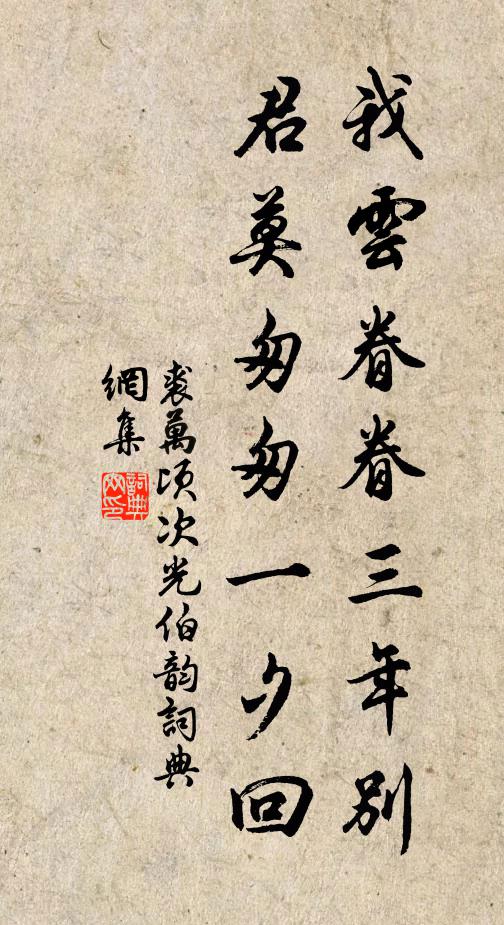 我雲眷眷三年別
君莫匆匆一夕回
裘萬頃次光伯韵詞典
網集
詞典